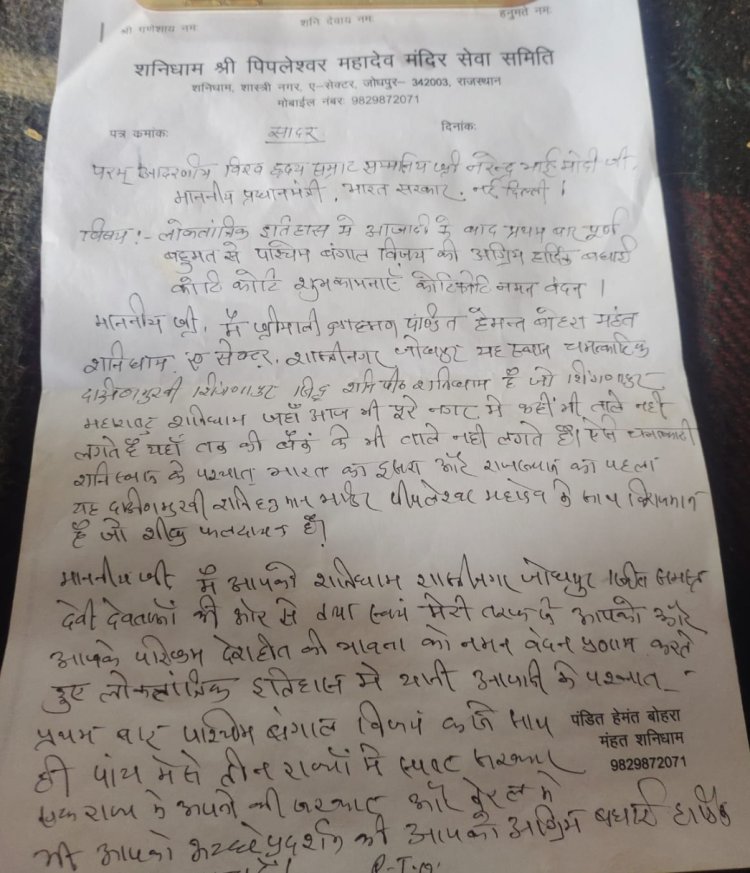 श्री गणेशाय नमः
शनि देवाय नमः
हनुमते नमः
शनिधाम श्री पिपलेश्वर महादेव मंदिर सेवा समिति
शनिधाम, शास्त्री नगर, ए-सेक्टर, जोधपुर- 342003, राजस्थान
मोबाईल नंबर: 9829872071
पत्र कमांकः
सादर
दिनांकः
परम् आदरणीय विश्व हृदय सम्राट सम्मानिय श्री नरेन्द्र भाई मोदी जी,
माननीय प्रधानमंत्री, भारत सरकार, नई दिल्ली।
विषय:- लोकतांत्रिक इतिहास मे आजादी के बाद प्रथम बार पूर्ण
बहुमत से पश्चिम बंगाल विजय की अग्रिम हार्दिक बधाई
कोटि कोटि शुभकामनाएँ कोटिकोटि नमन वंदन।
माननीय श्री, मैं श्रीमाली ब्राहमण पंडित हेमन्त बोहरा महंत
शनिधाम, ए सेक्टर, शास्त्रीनगर जोधपुर यह स्थान चमत्कारिक
दक्षिणमुखी शिंगणापुर सिद्ध शनिपीठ शनिधाम है जो शिंगणापुर
महाराष्ट्र शनिधाम जहाँ आज भी पूरे नगर मे कहीं भी ताले नही
लगते है यहाँ तक की बैंक के भी ताले नही लगते है। ऐसे चमत्कारी
शनिस्थान के पश्चात् भारत का दूसरा और राजस्थान का पहला
यह दक्षिणमुखी शनि हनुमान मंदिर पीपलेश्वर महादेव के साथ विराजमान
है जो शीघ्र फलदायक है।
माननीय श्री मैं आपको शनिधाम शास्त्रीनगर जोधपुर स्थित समस्त
देवी देवताओं की ओर से तथा स्वयं मेरी तरफ से आपको और
आपके परिश्रम देशहीत की भावना को नमन वंदन प्रणाम करते
हुए लोकतांत्रिक इतिहास मे यानी आजादी के पश्चात्
प्रथम बार पश्चिम बंगाल विजय के साथ
पंडित हेमंत बोहरा
ही पांच मेसे तीन राज्यों मे स्पष्ट सरकार
मंहत शनिधाम
9829872071
एक राज्य मे अपनी की सरकार और केरल मे
भी आपको अच्छे प्रदर्शन की आपको अग्रिम बधाई हार्दिक
P.T.O.